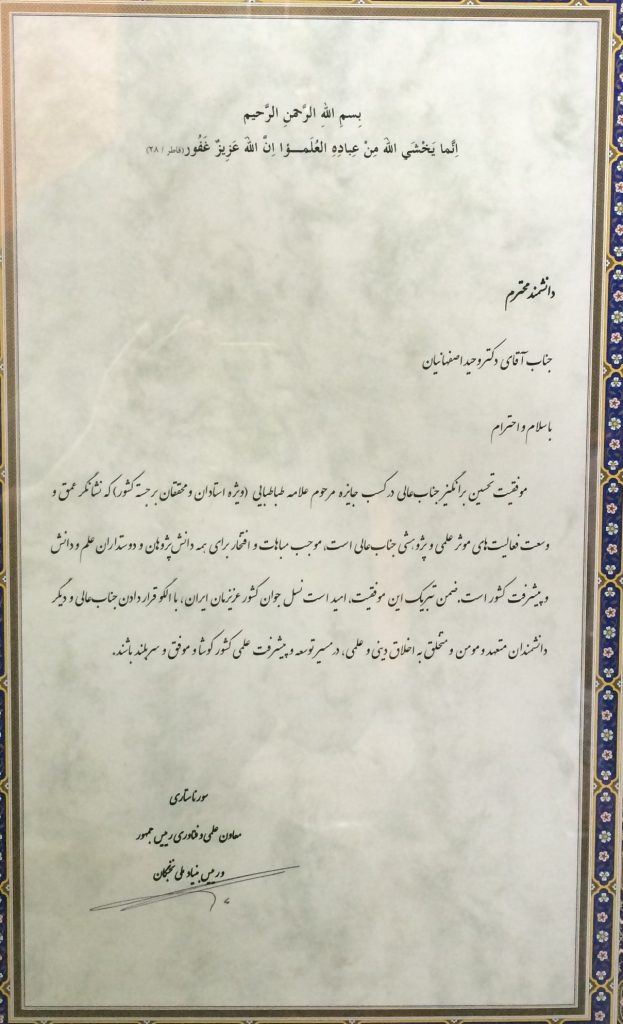 بِسمِ اللهِ الرَّحمنِ الرَّحیم
اِنَّما یَخْشَي اللهَ مِنْ عِبادِهِ العُلَمـــؤا اِنَّ اللهَ عَزِیزٌ غَفُور(فاطر / ۲۸)
دانشمند محترم
جناب آقای دکتر وحید اصفهانیان
با سلام و احترام
موفقیت تحسین برانگیز جناب‌عالی در کسب جایزه مرحوم علامه طباطبایی (ویژه استادان و محققان برجسته کشور) که نشانگر عمق و
وسعت فعالیت‌های موثر علمی و پژوهشی جناب‌عالی است، موجب مباهات و افتخار برای همه دانش‌پژوهان و دوستداران علم و دانش
و پیشرفت کشور است. ضمن تبریک این موفقیت، امید است نسل جوان کشور عزیزمان ایران، با الگو قرار دادن جناب‌عالی و دیگر
دانشمندان متعهد و مومن و متخلق به اخلاق دینی و علمی، در مسیر توسعه و پیشرفت علمی کشور کوشا و موفق و سربلند باشند.
سورنا ستاری
معاون علمی و فناوری رییس جمهور
و رییس بنیاد ملی نخبگان